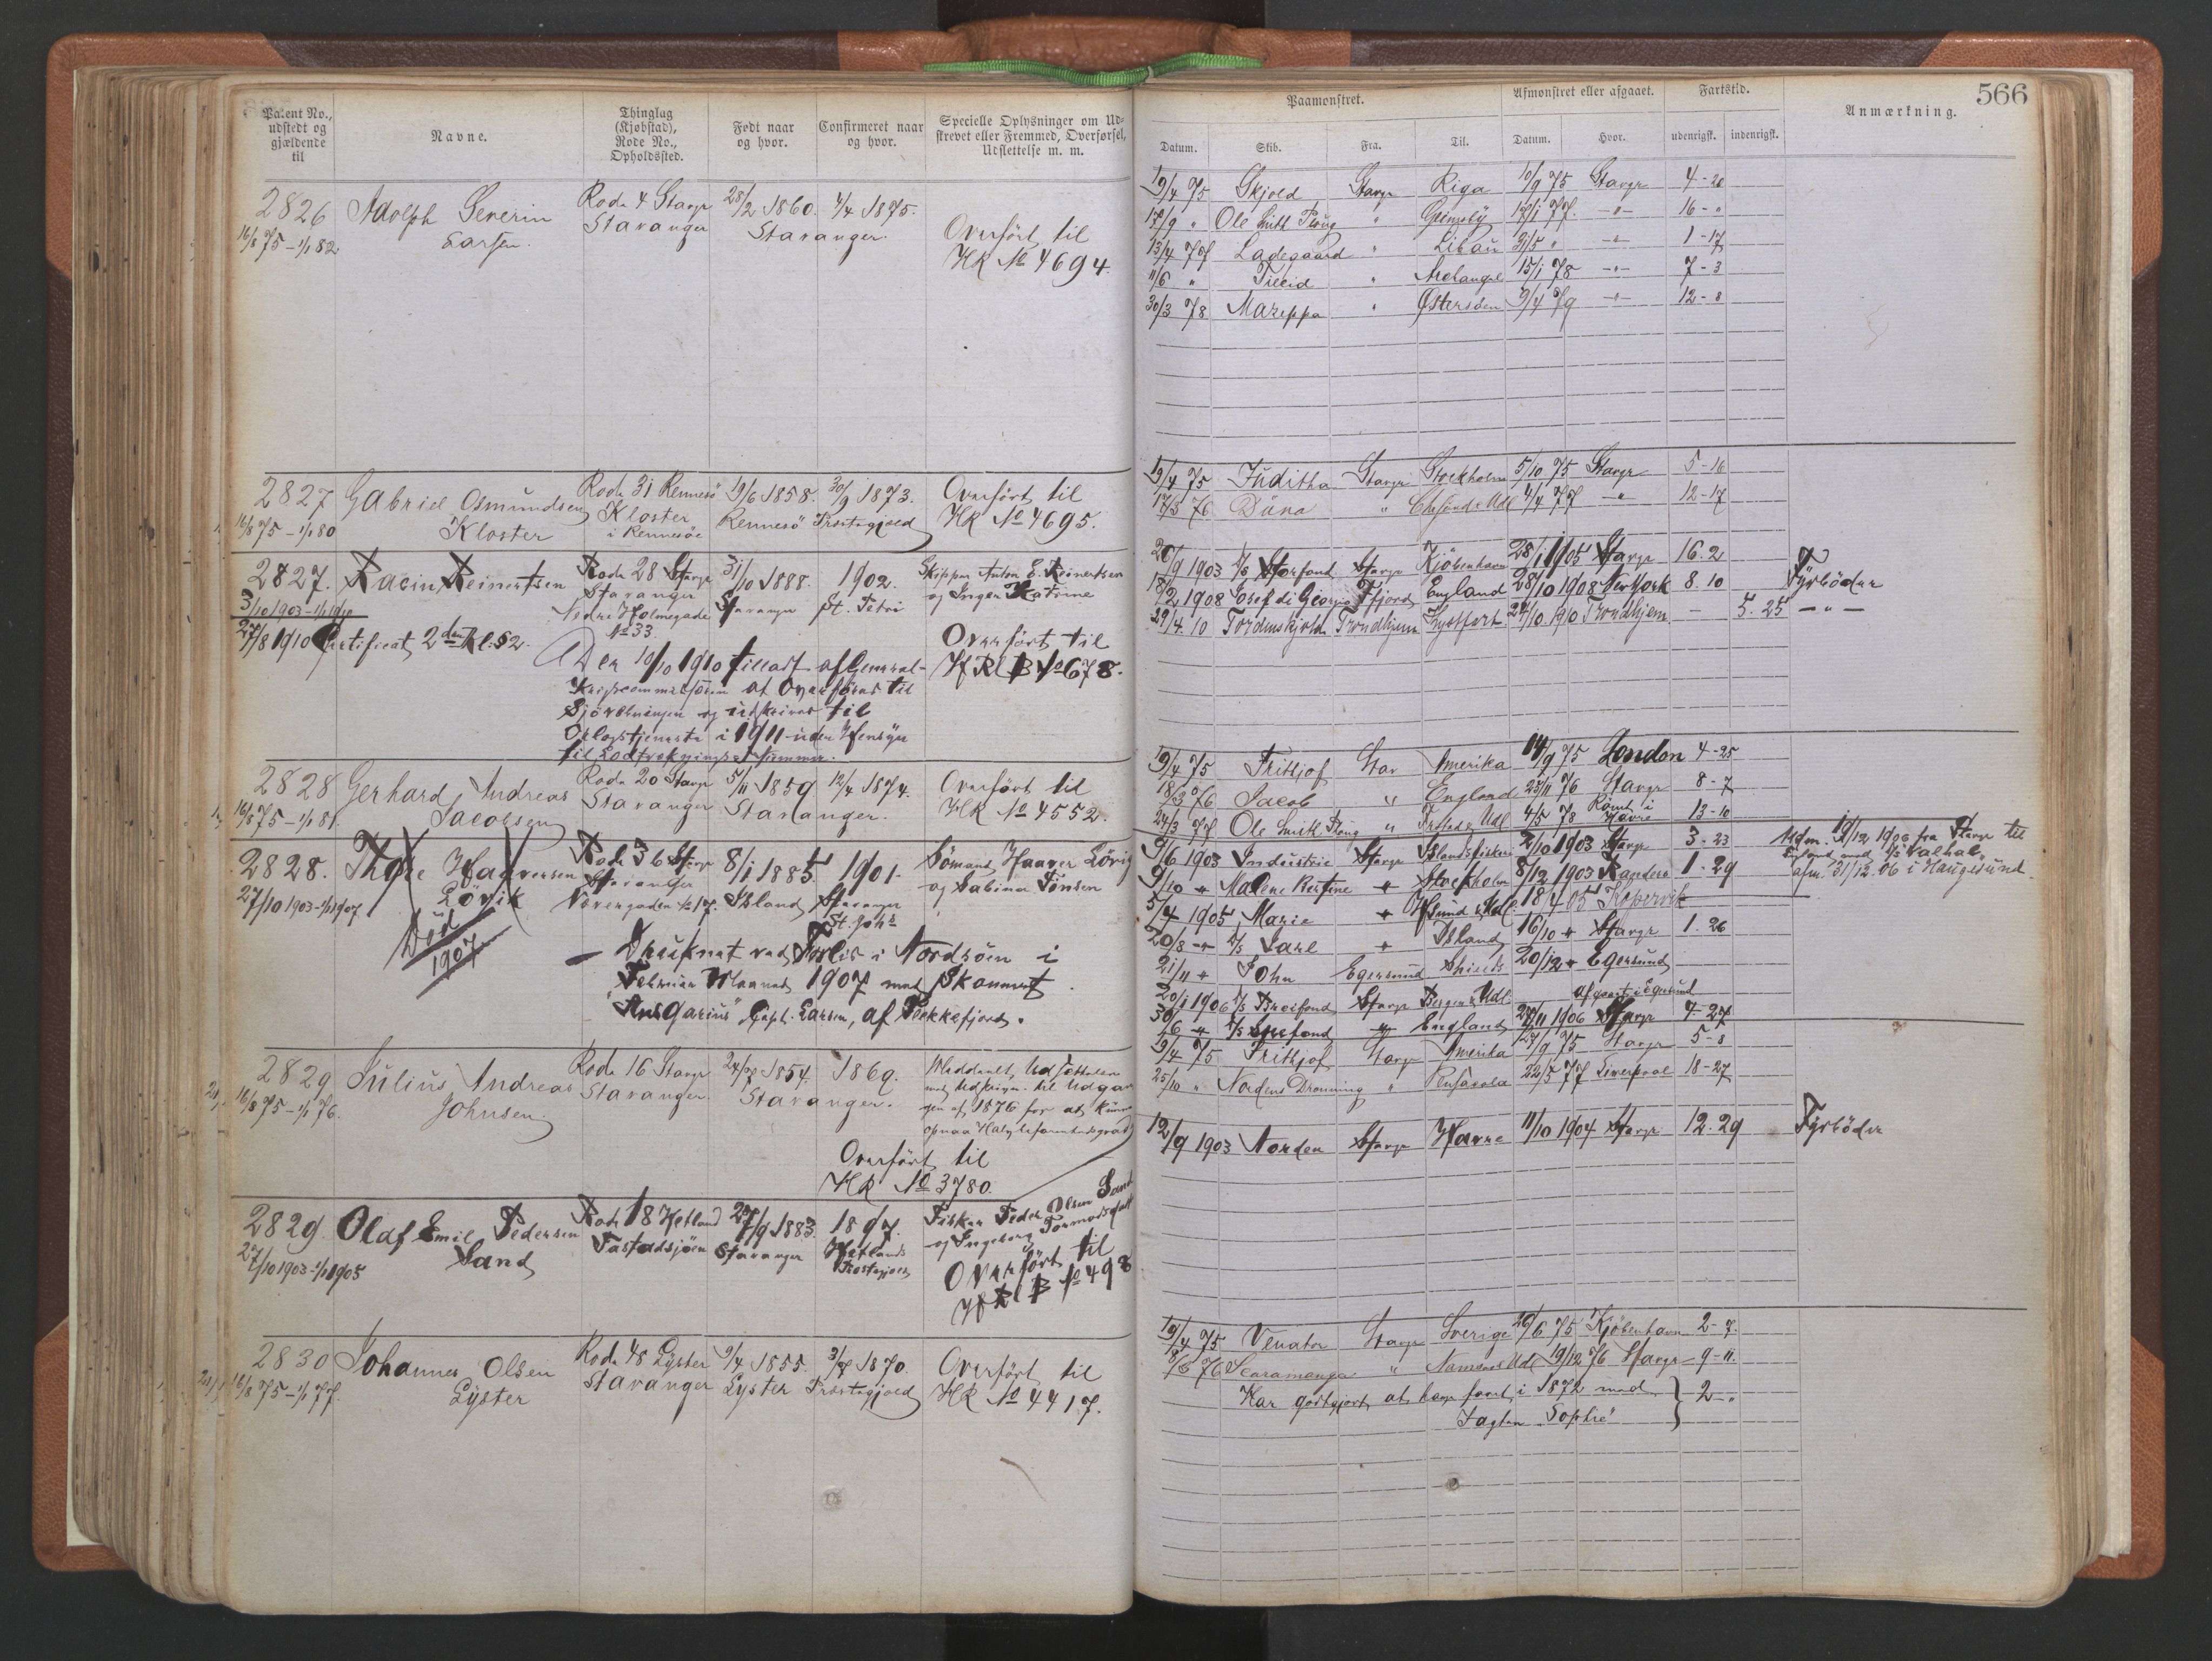 566
Patent No., udstedt og gjældende til
Navne.
Thinglug (Kjøbstad), Rode No., Opholdssted.
Født naar og hvor.
Confirmeret naar og hvor.
Specielle Oplysninger om Udstrevet eller Fremmed, Overførsel, Udslettelse m. m.
Paamønstret.
Afmønstret eller afgaaet.
Fartstid.
Anmærkning.
Datum.
Skib.
Fra.
Til.
Datum.
Hvor.
udenrigsk.
indenrigsk.
2826 Adolph Severin Rode 4 Stavgr 28/2 1860. 4/4 1875.
16/8 75 – 1/1 82 Larsen. Stavanger Stavanger.
Overført til
HR No 4694.
19/4 75 Skjold Stavgr Riga 10/9 75 Stavgr 4-20
17/9 " Ole Smith Ploug " Grimsby 17/1 77. -"- 16-"
13/4 77 Ladegaard " Libau 31/5 " -"- 1-17
11/6 " " Archangel 15/1 78 -"- 7-3
30/3 78 Mazeppa " Østersøen 9/4 79 -"- 12-8
2827 Gabriel Osmundsen Rode 31 Rennesö 19/6 1858. 30/9 1873. Overført til
16/8 75 – 1/1 80 Kloster Kloster i Rennesöe Rennesö Prostegjeld HR No 4695.
19/4 75 Juditha Stavgr Stockholm 5/10 75 Stavgr 5-16
17/3 76 Düna " 4/4 77 -"- 12-17
2827. Racin Reinertsen Rode 28 Stavgr 31/10 1888. 1902. Skipper Anton E. Reinertsen
3/10 1903 – 1/1 1910 Stavanger Stavanger St. Petri og Inger Katrine
Nedre Holmegade No 33.
27/8 1910 Certificat 2den Kl. 52.
Overført til
HRl B No 678.
Den 10/10 1910 tilladt af General-
Krigscommissæren at Overføres til
Sjörulningen og udskrives til
Oplagstjeneste i 1911 uden Hensyn
til Lodtrækningsnummer.
26/9 1903 S/S Storfond Stavgr Kjöbenhavn 28/1 1905 Stavgr 16.2
18/2 1908 Josef di Giorgio Ffjord England 28/10 1908 New York 8.10 Fyrböder
29/4. 10 Tordenskjold Trondhjem Kystfart 24/10 1910 Trondhjem – 5. 25 – " –
2828 Gerhard Andreas Rode 20 Stavgr 5/11 1859 12/4 1874. Overført til
16/8 75 – 1/1 81. Jacobsen Stavanger Stavanger. HR No 4552.
19/4 75 Frithjof Stav Amerika 14/9 75 London 4-25
18/3 76 Jacob " England 23/11 76 Stavgr 8-7
24/3 77 Ole Smith Ploug " 4/5 78 Rømt i Havre 13-10
2828. Thore Haaversen Rode 36 Stavgr 8/1 1885 1901. Sömand Haaver Lövig
27/10 1903 – 1/1 1907 Lövik Stavanger Island Stavanger og Sabina Tönsen
St. Johs
Död
1907
– Druknet ved Forlis i Nordsöen i
Februar Maaned 1907 med Skonnert
"Ansgarius" Capt. Larsen, af Flekkefjord.
9/6 1903 Industrie Stavgr Islandsfiskeri 2/10 1903 Stavgr 3-23
9/10 " Malene Kirstine " Stockholm 8/12 1903 Randers 1. 29
5/4 1905 Marie " Hsund & Udl. 18/4 05 Kopervik
20/8 – " S/S Jarl " Island 16/10 " Stavgr 1. 26
21/11 " John Egersund Shields 20/12 " Egersund
20/1 1906 S/S Breifond Stavgr Bergen & Udl. afgaaet i Egersund
30/6 " S/S England 27/11 1906 Stavgr 4-27
Mdm. 19/12 1906 fra Stavgr til
England med S/S Valhal,
afm. 31/12 06 i Haugesund.
2829 Julius Andreas Rode 16 Stavgr 1854 1869.
16/8 75 – 1/1 76. Johnsen. Stavanger. Stavanger.
Meddeelt Udsættelse
med Udskrivn. til Udgan-
gen af 1876 for at kunne
opnaa Halvbefarenhedsgrad
Overført til
HR No 3780.
19/4 75 Frithjof Stavgr Amerika 27/9 75 Stavgr 5-8
25/10 " Nordens Dronning " Pensacola 22/5 77 Liverpool 18-27
2829. Olaf Emil Pedersen Rode 18 Hetland 27/9 1883. 1897. Fisker Peder Olsen Sand
27/10 1903 – 1/1 1905 Sand Tastadsjøen Stavanger Hetlands Prestegjeld og Ingeborg Tormodsdatter
Overført til
HRl B No 498
12/9 1903 Norden Stavgr Havre 11/10 1904 Stavgr 12. 29 Fyrböder
2830 Johannes Olsen Rode 48 Lyster 9/4 1855. 3/7 1870. Overført til
16/8 75 – 1/1 77. Lyster Stavanger Lyster Prestegjeld HR No 4417.
19/4 75 Venator Stavgr Sverige 26/6 75 Kjöbenhavn 2-7.
8/3 76 Scaramanga " Namsos & Udl 19/12 76 Stavgr 9-11.
Har godtgjort at have faret i 1872 med } 2-"
Jagten "Sophie"